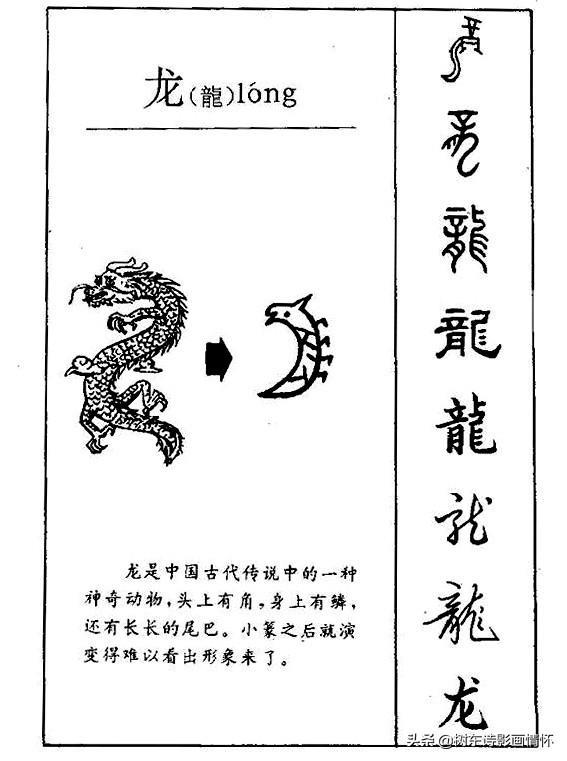 龙(龍)lóng
龙是中国古代传说中的一种
神奇动物，头上有角，身上有鳞，
还有长长的尾巴。小篆之后就演
变得难以看出形象来了。
龍
龍
龍
龍
龍
龙
龍
龙
头条@树东诗影画情怀